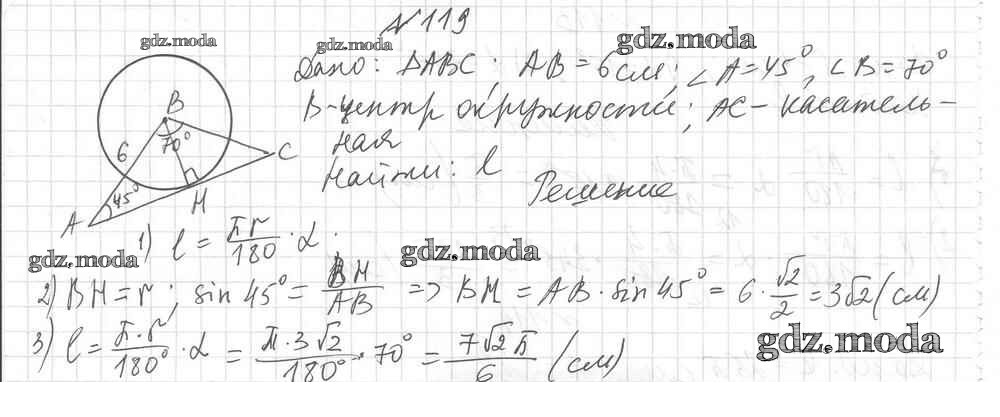 № 119
gdz.moda
gdz.moda
gdz.moda
Дано: ΔABC; AB = 6 см; ∠A = 45°, ∠B = 70°
B-центр окружности; AC - касатель-
ная
Найти: l
Решение
B
70°
6
C
45°
H
A
1) l = πr/180 · α.
gdz.moda
gdz.moda
2) BH = r; sin 45° = BH/AB => BH = AB · sin 45° = 6 · √2/2 = 3√2 (см)
3) l = π·r/180° · α = π·3√2/180° · 70° = 7√2π/6 (см)
gdz.moda